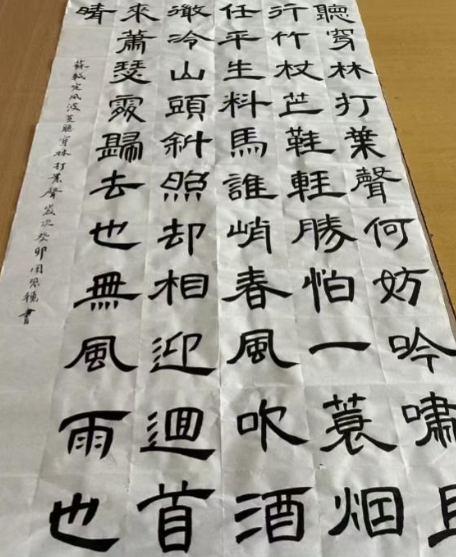 聽穿林打葉聲何妨吟嘯且
行竹杖芒鞋輕勝怕一蓑烟
任平生料馬誰峭春風吹酒
微冷山頭斜照却相迎迴首
來蕭瑟處歸去也無風雨也
晴
蘇軾定風波莫聽穿林打葉聲歲次癸卯書